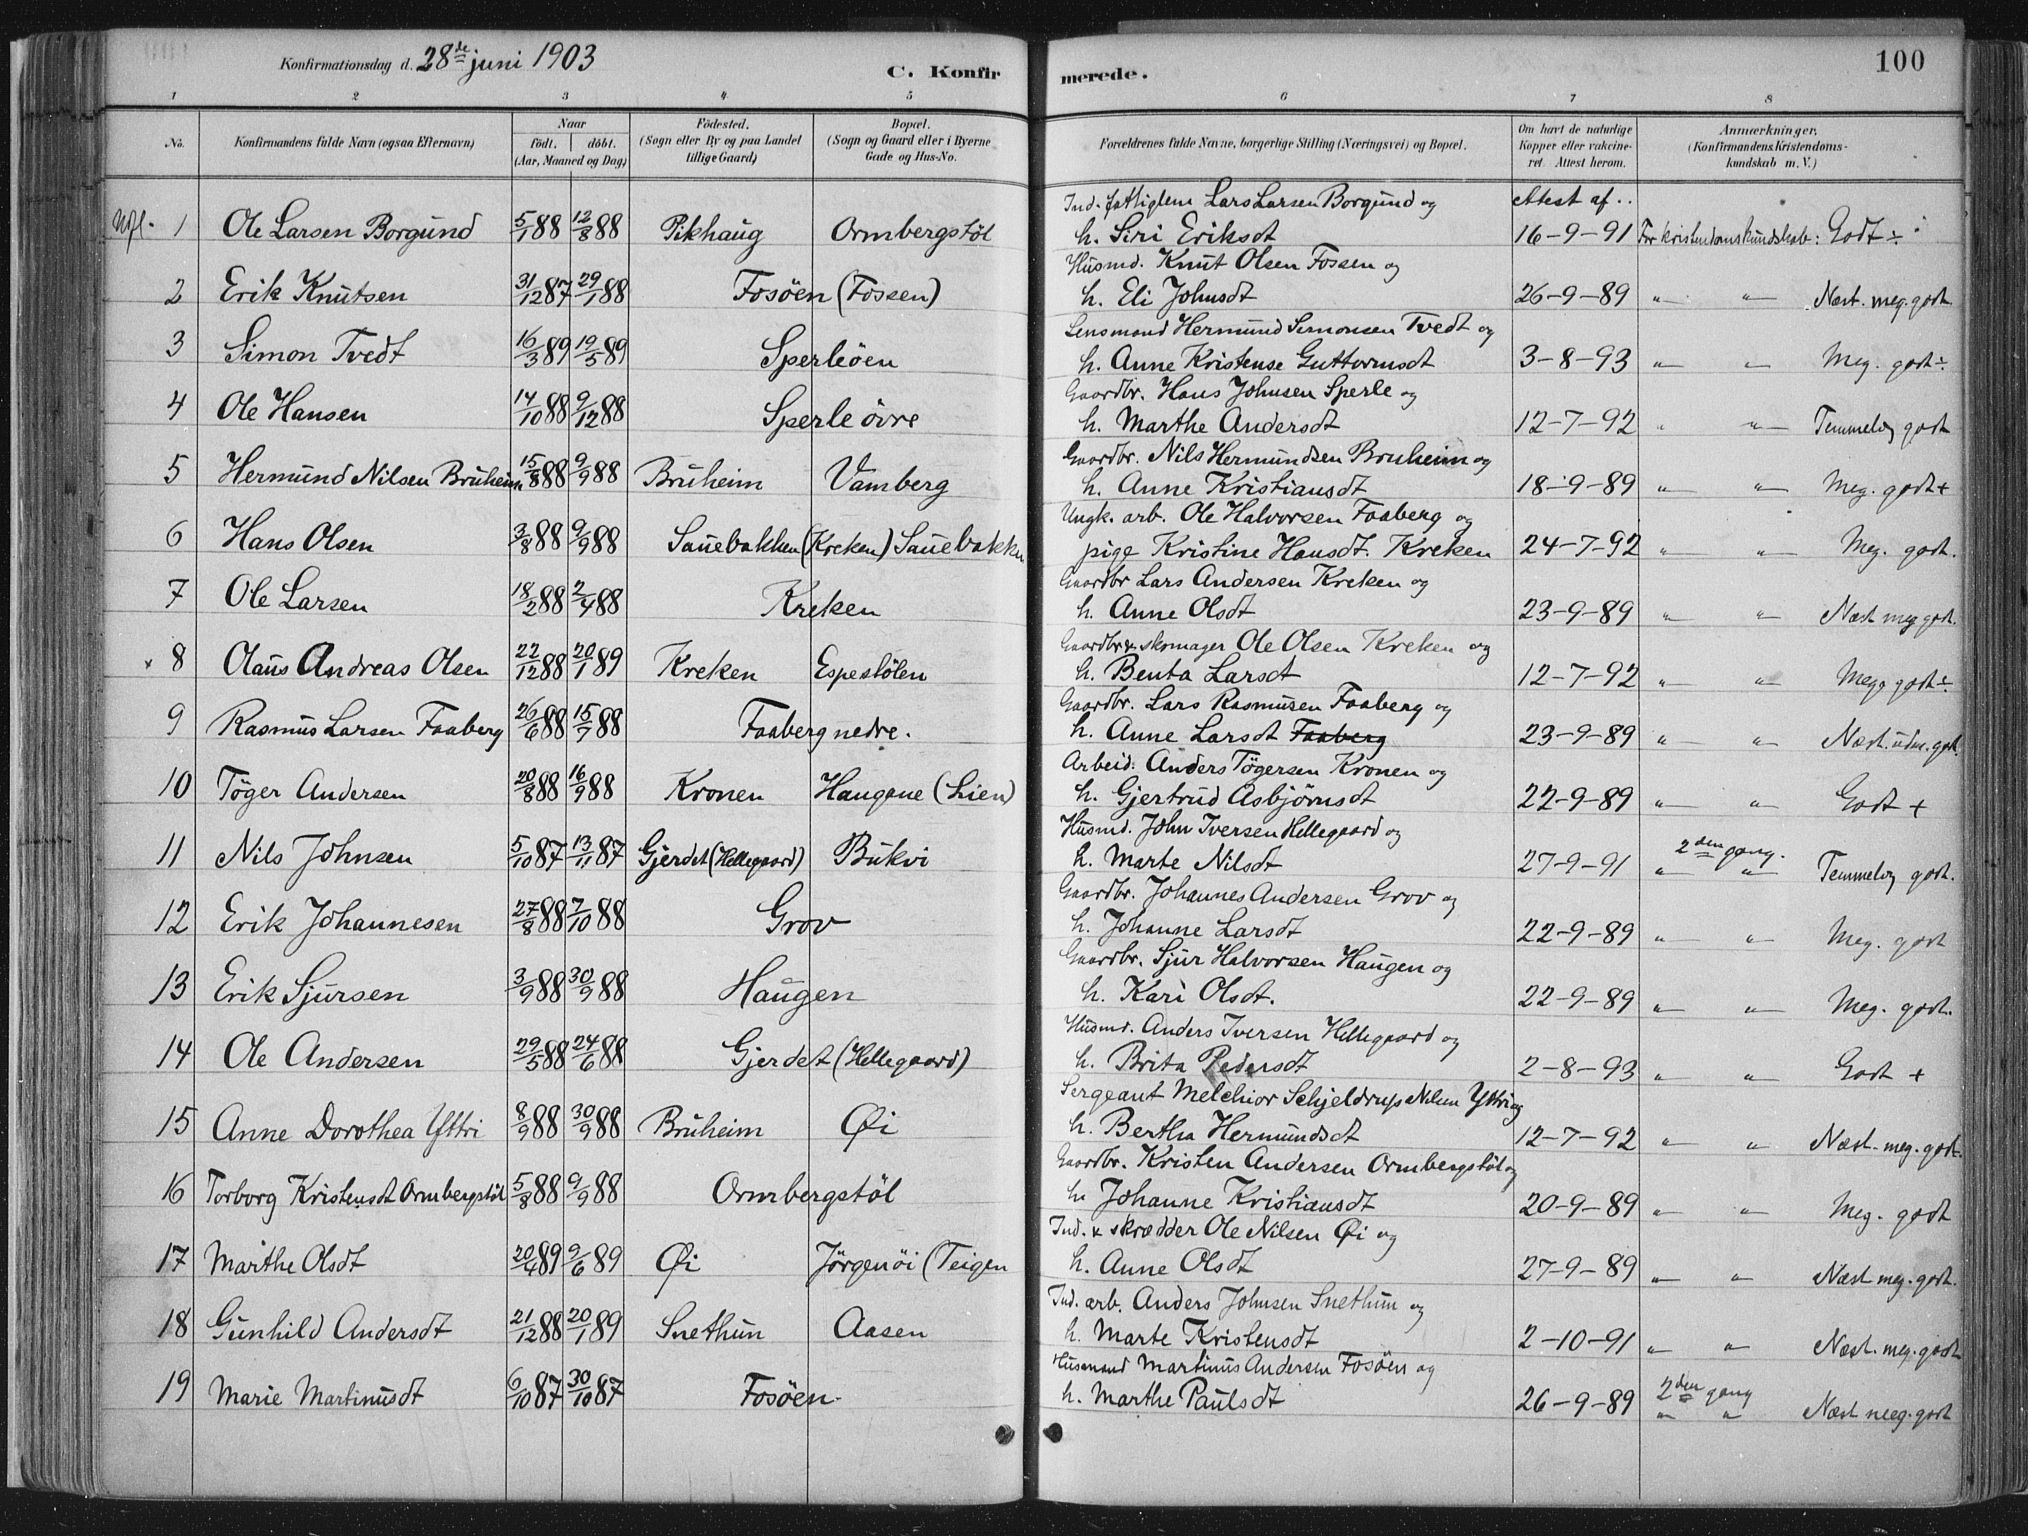 Konfirmationsdag d. 28de juni 1903
C. Konfirmerede.
100
1 2 3 4 5 6 7 8
No. Konfirmandens fulde Navn (ogsaa Efternavn)
Naar födt. döbt. (Aar, Maaned og Dag)
Födested. (Sogn eller By og paa Landet tillige Gaard)
Bopæl. (Sogn og Gaard eller i Byerne Gade og Hus-No.
Forældrenes fulde Navne, borgerlige Stilling (Næringsvei) og Bopæl.
Om havt de naturlige Kopper eller vakcineret. Attest herom.
Anmærkninger. (Konfirmandens Kristendomskundskab m. V.)
Ind. fattiglem Lars Larsen Borgund og attest af..
1 Ole Larsen Borgund 5/1 88 12/8 88 Pikhaug Ormbergstöl h. Siri Eriksdt 16-9-91 For kristendomskundskab: Godt ÷
Husmd. Knut Olsen Fossen og
2 Erik Knutsen 31/12 87 29/1 88 Fosöen (Fossen) h. Eli Johnsdt 26-9-89 " " Næst. meg. godt
Lensmand Hermund Simonsen Tvedt og
3 Simon Tvedt 16/3 89 19/5 89 Sperleöen h. Anne Kristense Guttormsdt 3-8-93 " " Meg. godt ÷
Gaardbr. Hans Johnsen Sperle og
4 Ole Hansen 14/10 88 9/12 88 Sperle övre h. Marthe Andersdt 12-7-92 " " Temmelig godt
Gaardbr. Nils Hermundsen Bruheim og
5 Hermund Nilsen Bruheim 15/8 88 9/9 88 Bruheim Vamberg h. Anne Kristiansdt 18-9-89 " " Meg. godt +
Ungk. arb. Ole Halvorsen Faaberg og
6 Hans Olsen 3/8 88 9/9 88 Sauebakken (Kreken) Sauebakken pige Kristine Hansdt. Kreken 24-7-92 " " Meg. godt.
Gaardbr Lars Andersen Kreken og
7 Ole Larsen 18/2 88 2/4 88 Kreken h. Anne Olsdt 23-9-89 " " Næst meg godt.
Gaardbr. & skomager Ole Olsen Kreken og
x 8 Olaus Andreas Olsen 22/12 88 20/1 89 Kreken Espestölen h. Benta Larsdt 12-7-92 " " Meg. godt ÷
Gaardbr. Lars Rasmusen Faaberg og
9 Rasmus Larsen Faaberg 26/6 88 15/7 88 Faaberg nedre. h. Anne Larsdt Faaberg 23-9-89 " " Næst. udm. godt.
Arbeid: Anders Tögersen Kronen og
10 Töger Andersen 20/8 88 16/9 88 Kronen Haugene (Lien) h. Gjertrud Asbjörnsdt 22-9-89 " " Godt +
Husmd. John Iversen Hellegaard og
11 Nils Johnsen 5/10 87 13/11 87 Gjerdet (Hellegaard) Bukvi h. Marte Nilsdt 27-9-91 2den gang. " " Temmelig godt.
Gaardbr. Johannes Andersen Grov og
12 Erik Johannesen 27/8 88 7/10 88 Grov h. Johanne Larsdt 22-9-89 " " Meg. godt
Gaardbr. Sjur Halvorsen Haugen og
13 Erik Sjursen 3/9 88 30/9 88 Haugen h. Kari Olsdt. 22-9-89 " " Meg. godt.
Husmd. Anders Iversen Hellegaard og
14 Ole Andersen 29/5 88 24/6 88 Gjerdet (Hellegaard) h. Brita Pedersdt 2-8-93 " " Godt +
Sergeant Melchior Schjeldrup Nilsen Yttri og
15 Anne Dorothea Yttri 8/9 88 30/9 88 Bruheim Øi h. Bertha Hermundsdt 12-7-92 " " Næst. meg. godt.
Gaardbr. Kristen Andersen Ormbergstöl og
16 Torborg Kristensdt Ormbergstöl 5/8 88 9/9 88 Ormbergstöl h. Johanne Kristiansdt 20-9-89 " " Meg. godt
Ind. & skrædder Ole Nilsen Øi og
17 Marthe Olsdt 20/4 89 9/6 89 Øi Jörgenöi (Teigen h. Anne Olsdt 27-9-89 " " Næst meg. godt.
Ind. arb. Anders Johnsen Snethun og
18 Gunhild Andersdt 21/12 88 20/1 89 Snethun Aasen h. Marte Kristensdt 2-10-91 " " Næst. meg. godt
Husmand Martinus Andersen Fosöen og
19 Marie Martinusdt 6/10 87 30/10 87 Fosöen. h. Marthe Paulsdt 26-9-89 2den gang " " Næst meg. godt